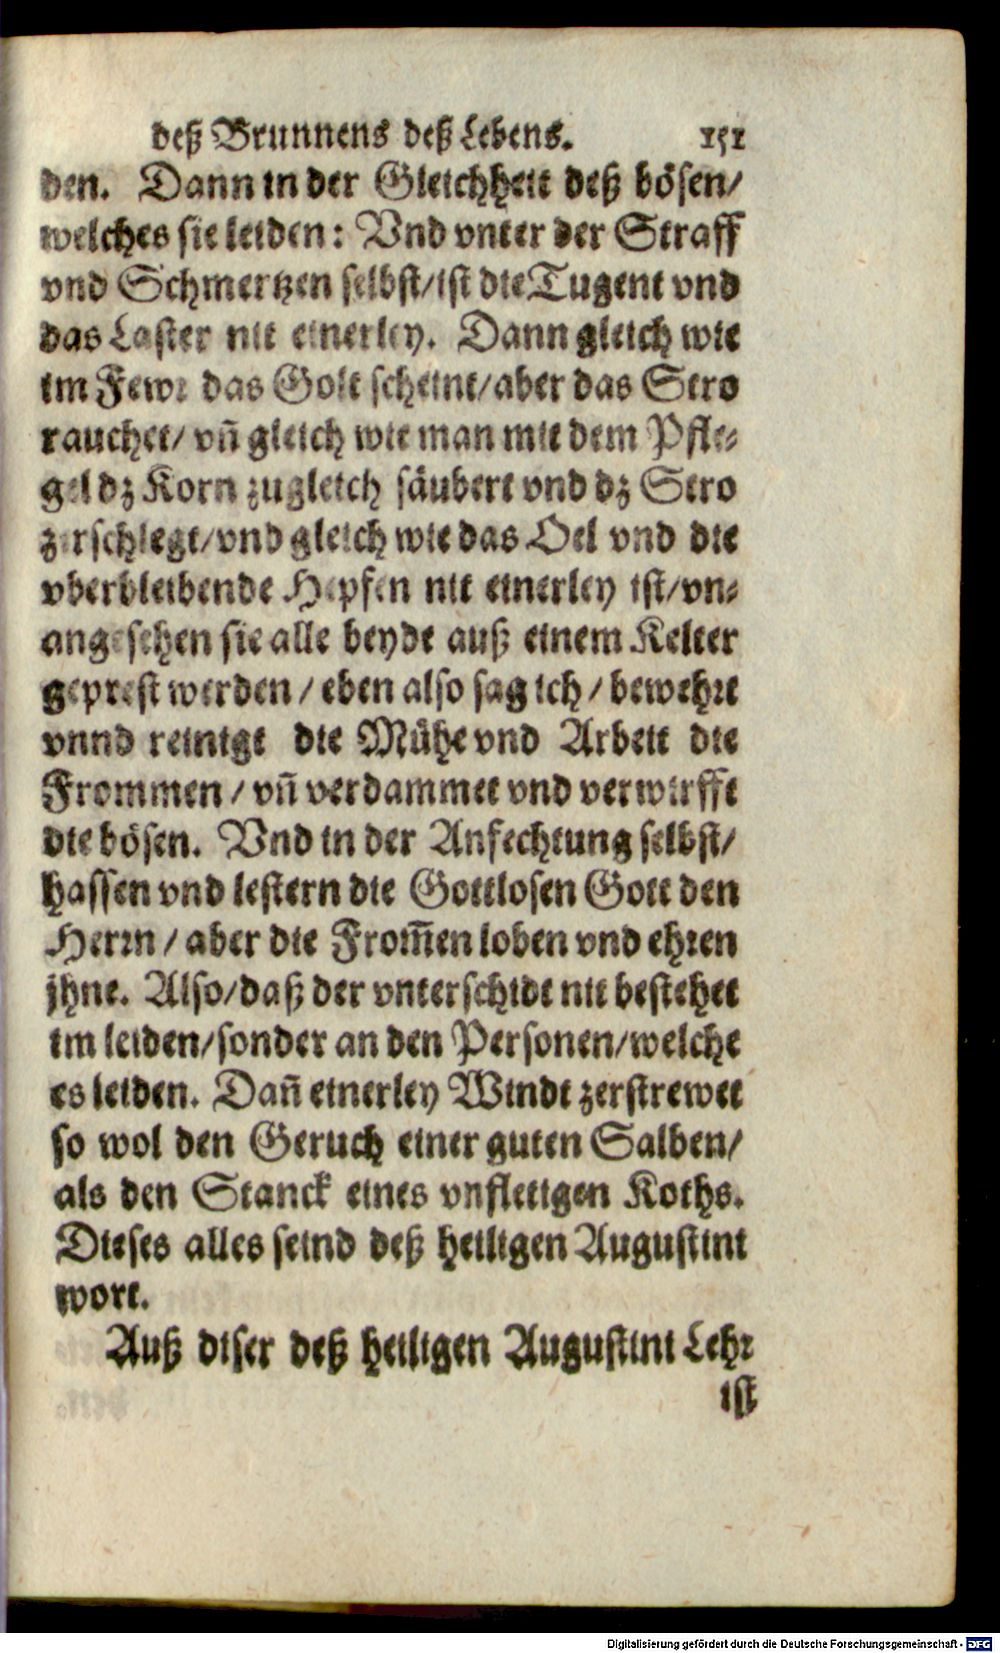 deß Brunnens deß Lebens. 151
den. Dann in der Gleichheit deß bösen/
welches sie leiden: Vnd vnter der Straff
vnd Schmertzen selbst/ist die Tugent vnd
das Laster nit einerley. Dann gleich wie
im Fewr das Golt scheint/aber das Stro
rauchet/ vñ gleich wie man mit dem Pfle-
gel dz Korn zugleich säubert vnd dz Stro
zerschlegt/vnd gleich wie das Oel vnd die
vberbleibende Hepfen nit einerley ist/vn-
angesehen sie alle beyde auß einem Kelter
geprest werden / eben also sag ich / bewehrt
vnnd reinigt die Mühe vnd Arbeit die
Frommen / vñ verdammet vnd verwirfft
die bösen. Vnd in der Anfechtung selbst/
hassen vnd lestern die Gottlosen Gott den
Herrn / aber die From̃en loben vnd ehren
jhne. Also/daß der vnterschidt nit bestehet
im leiden/sonder an den Personen/welche
es leiden. Dañ einerley Windt zerstrewet
so wol den Geruch einer guten Salben/
als den Stanck eines vnfletigen Koths.
Dieses alles seind deß heiligen Augustini
wort.
Auß diser deß heiligen Augustini Lehr
ist
Digitalisierung gefördert durch die Deutsche Forschungsgemeinschaft - DFG